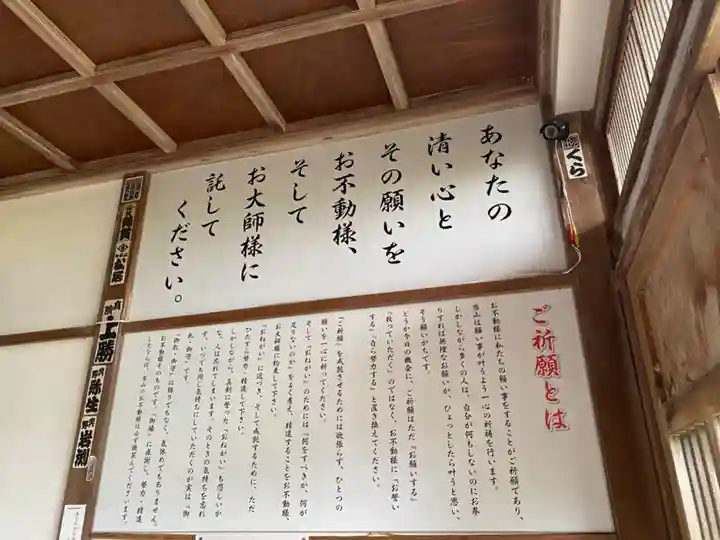 あなたの
清い心と
その願いを
お不動様、
そして
お大師様に
託して
ください。
ご祈願とは
お不動様に私たちの願い事をすることがご祈願であり、
当山は願い事が叶うよう一心の祈祷を行います。
しかしながら多くの人は、自分が何もしないのにお参
りすれば無理なお願いが、ひょっとしたら叶うと思い、
そう願いがちです。
どうか今日の機会に、ご祈願はただ『お願いする』
『救っていただく』のではなく、お不動様に『お誓い
する』『自ら努力する』と置き換えてください。
『ご祈願』を成就させるためには欲張らず、ひとつの
願いを一心に祈ってください。
そして『おねがい』のためには『何をすべきか、何が
足りないのか』をよく考え、精進することをお不動様、
お大師様に約束して下さい。
『おねがい』に近づき、そして成就するために、ただ
ひたすら努力・精進して下さい。
しかしながら、真剣に誓った『おねがい』も悲しいか
な、人は忘れてしまいます。そのときの気持ちを忘れ
ず、いつでも同じ気持ちにしていただくのが実は『御
札・御守』です。
『御札・御守』は飾りでもなく、気休めでもありません。
お不動様そのものです。『御縁』に感謝し、努力・精進
したならば、当山のお不動様は必ず微笑んでくださいます。
くら
上勝